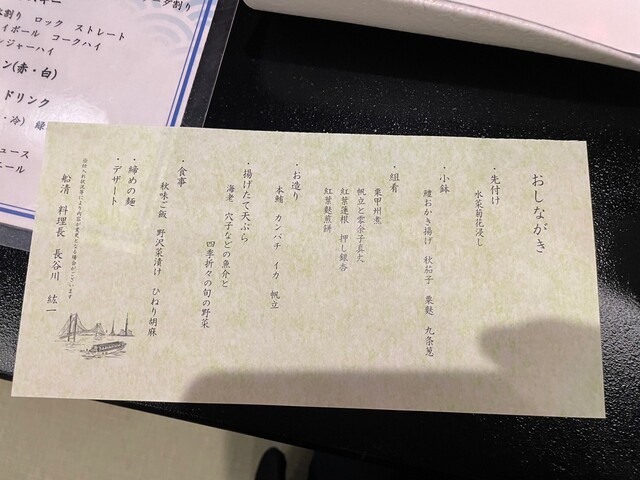 おしながき
・先付け
水菜菊花浸し
・小鉢
鱧おかき揚げ 秋茄子 粟麩 九条葱
・組肴
栗甲州煮
帆立と雲丹子真丈
紅葉蓮根 押し銀杏
紅葉麩煎餅
・お造り
本鮪 カンパチ イカ 帆立
・揚げたて天ぷら
海老 穴子などの魚介と
四季折々の旬の野菜
・食事
秋味ご飯 野沢菜漬け ひねり胡麻
・締めの麺
・デザート
※仕入れ状況等により内容が変更となる場合がございます
船清 料理長 長谷川 紘一
割り ロック ストレート
イボール コークハイ
ンジャーハイ
ン(赤・白)
ドリンク
・冷)
ュース
エール